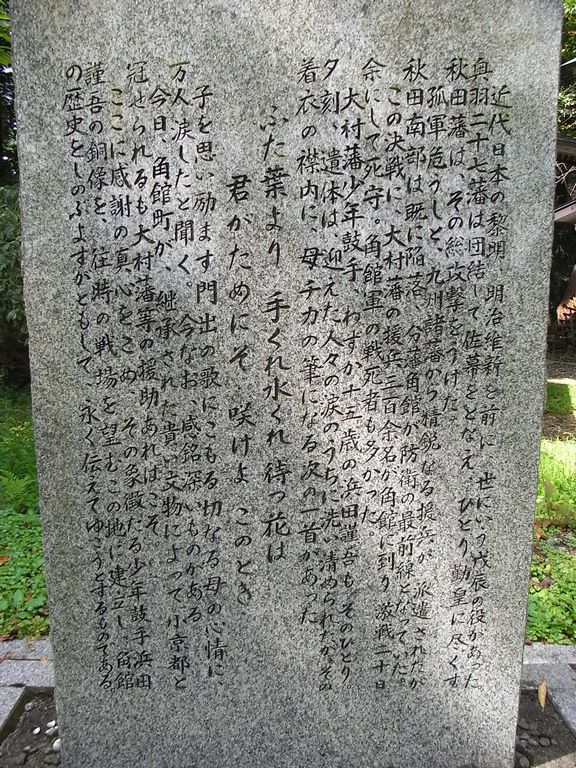 近代日本の黎明、明治維新を前に、世にいう戊辰の役があった
奥羽二十七藩は団結して佐幕をとなえ、ひとり、勤皇に尽くす
秋田藩は、その総攻撃をうけた。
孤軍危うしと、九州諸藩から精鋭なる援兵が、派遣されたが
秋田南部は既に陥落、分藩角館が防衛の最前線となっていた。
この決戦に、大村藩の援兵三百余名が角館に到り、激戦二十日
余にして死守。角館軍の戦死者も多かった。
大村藩少年鼓手、わずか十五歳の浜田謹吾も、そのひとり
夕刻、遺体は、迎えた人々の涙のうちに洗い清められたが、その
着衣の襟内に、母チカの筆になる次の一首があった
ふた葉より 手くれ水くれ 待つ花は
君がためにぞ 咲けよ このとき
子を思い励ます門出の歌にこもる切なる母の心情に、
万人涙したと聞く。今なお、感銘深いものがある
今日、角館町が、継承された貴い文物によって小京都と
冠せられるも大村藩等の援助あればこそ
ここに感謝の真心をこめ、その象徴たる少年鼓手浜田
謹吾の銅像を、往時の戦場を望むこの地に建立し、角館
の歴史をしのぶよすがともして、永く伝えてゆこうとするものである